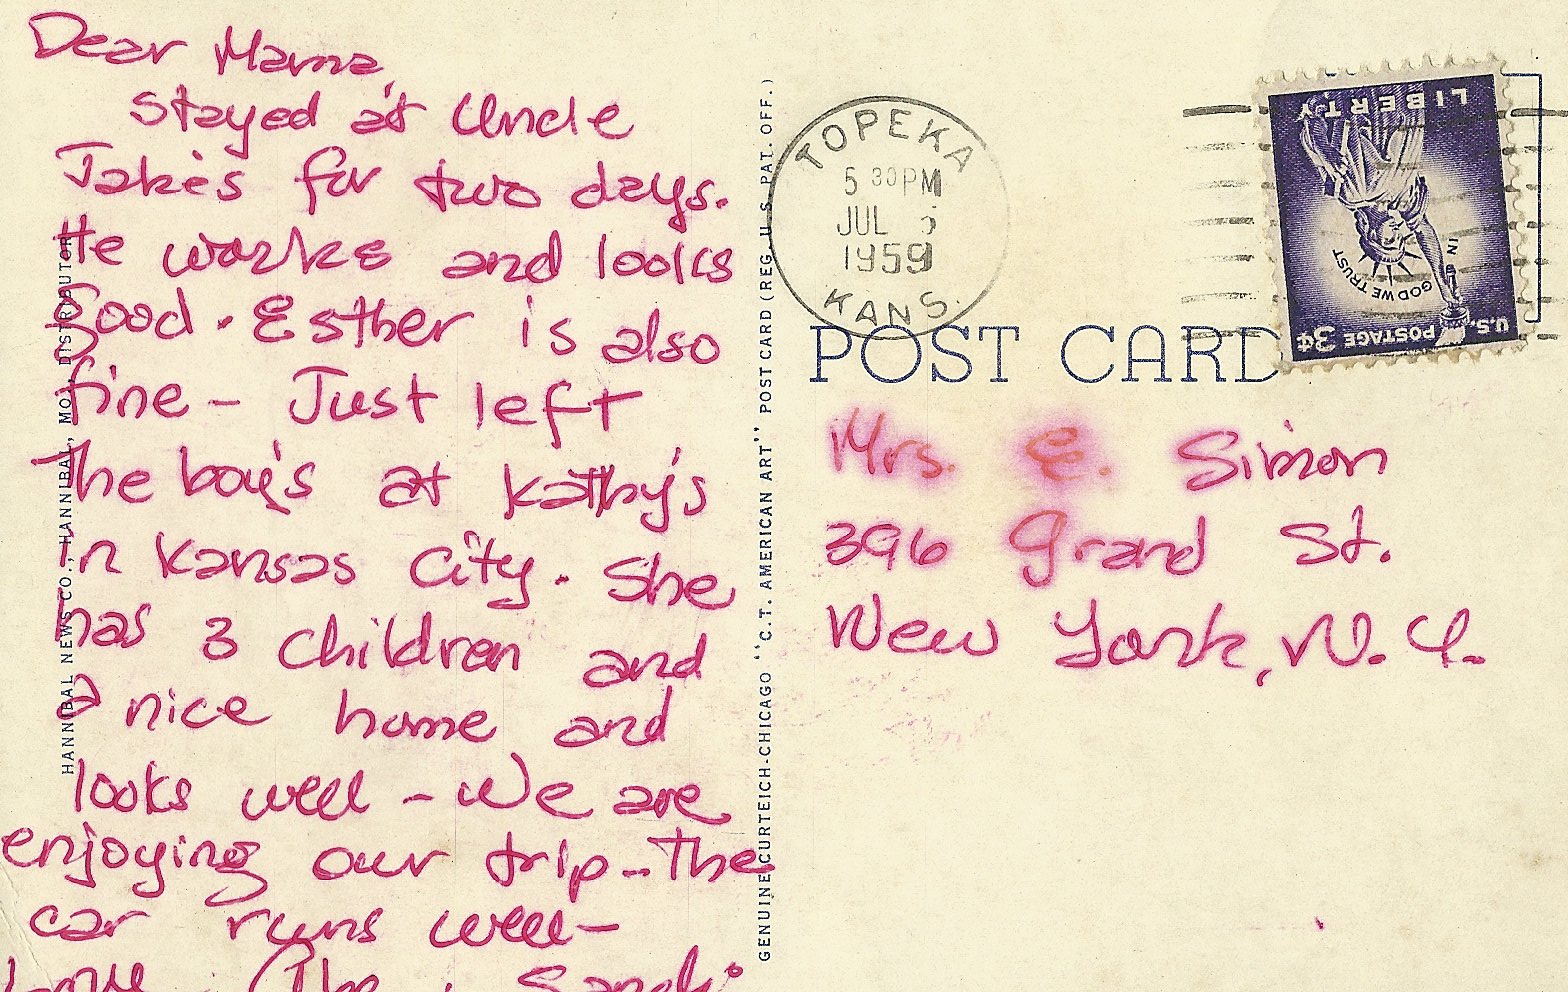 Dear Mama,
stayed at Uncle
Jake's for two days.
He works and looks
good. Esther is also
fine - Just left
The boy's at Kathy's
in Kansas City. She
has 3 children and
a nice home and
looks well - We are
enjoying our trip - The
car runs well -
Love
HANNIBAL NEWS CO., HANNIBAL, MO., DISTRIBUTOR
GENUINE CURTEICH-CHICAGO "C.T. AMERICAN ART" POST CARD (REG. U. S. PAT. OFF.)
TOPEKA
5 30 PM
JUL
1959
KANS.
LIBERTY
IN GOD WE TRUST
U.S. POSTAGE 3¢
POST CARD
Mrs. E. Simon
396 Grand St.
New York, N.Y.